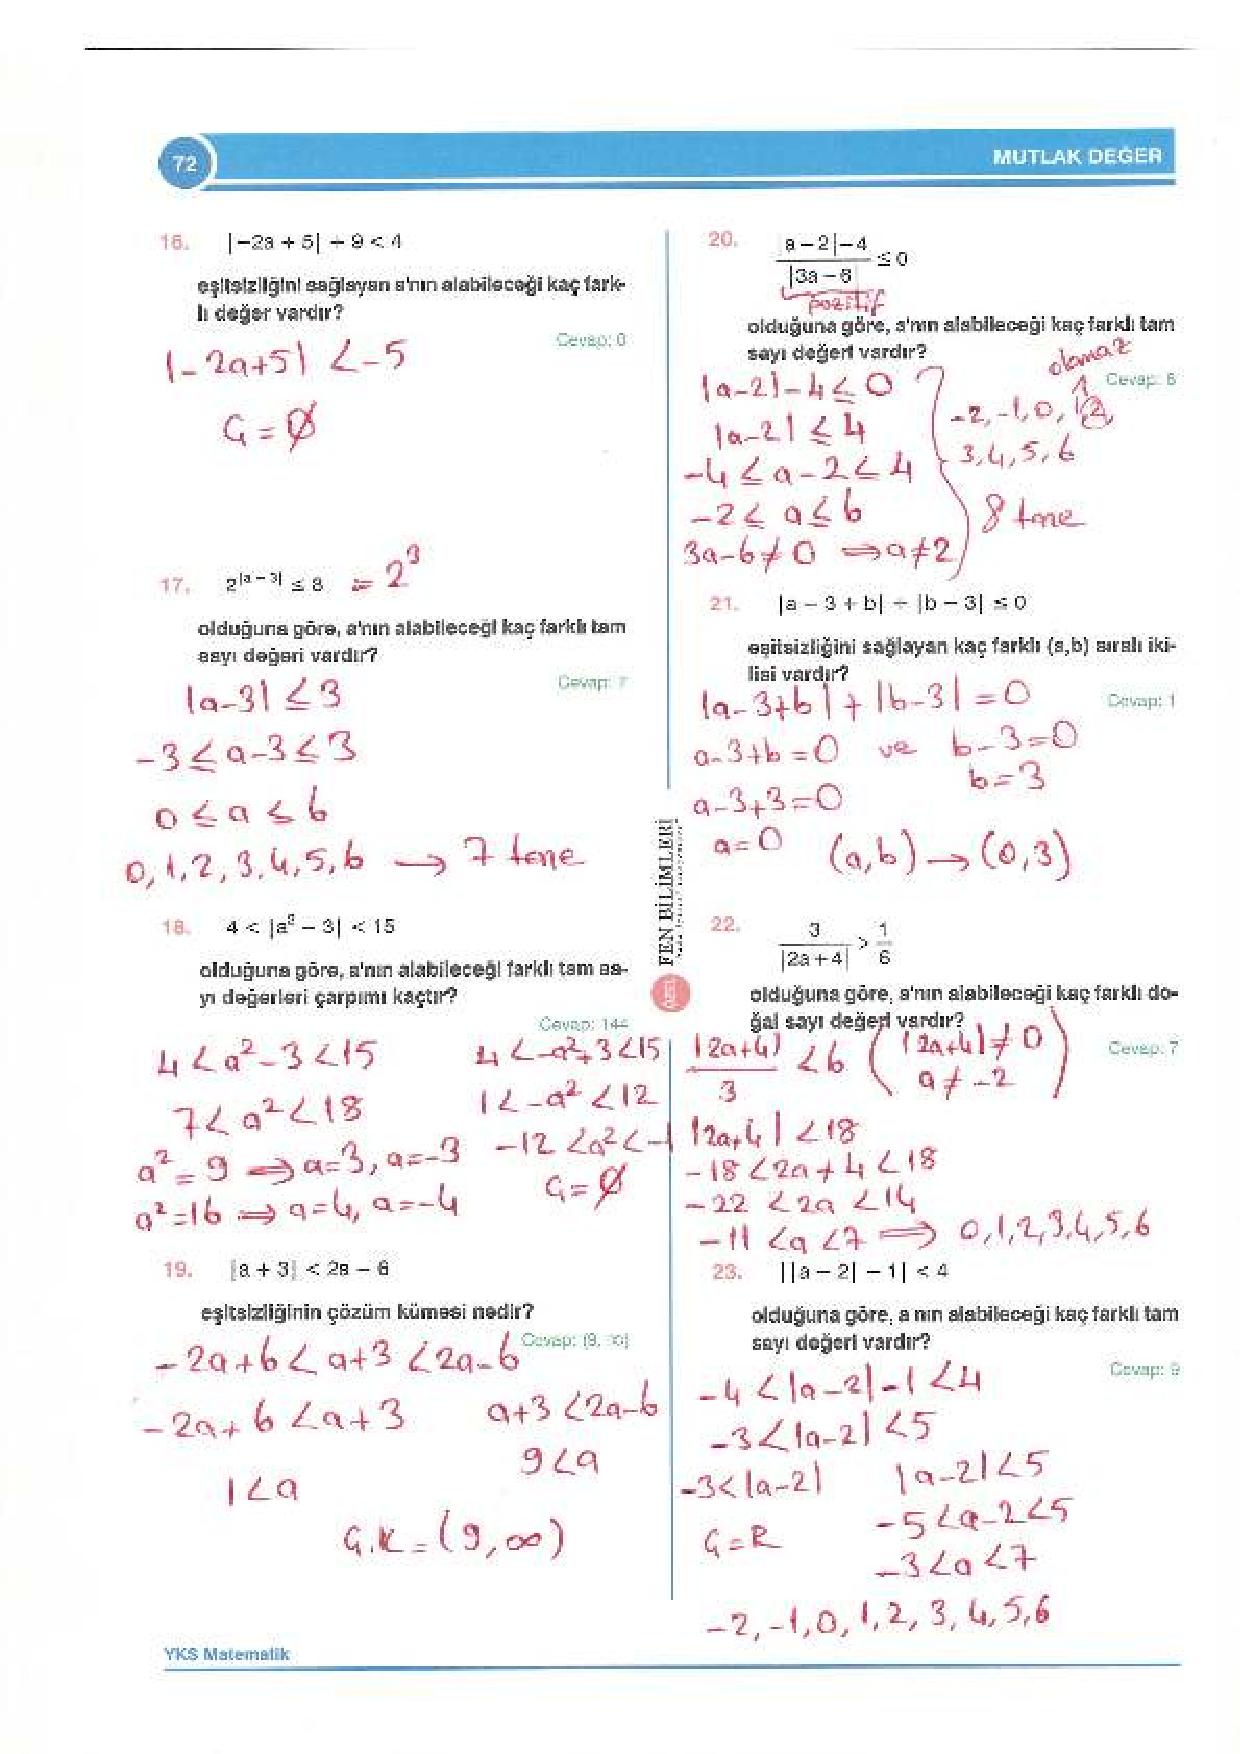 72
MUTLAK DEĞER
16. |-2a + 5| + 9 < 4
eşitsizliğini sağlayan a'nın alabileceği kaç fark-
lı değer vardır?
Cevap: 0
|-2a+5| < -5
Ç = Ø
17. 2^|a-3| ≤ 8 = 2^3
olduğuna göre, a'nın alabileceği kaç farklı tam
sayı değeri vardır?
Cevap: 7
|a-3| ≤ 3
-3 ≤ a-3 ≤ 3
0 ≤ a ≤ 6
0, 1, 2, 3, 4, 5, 6 → 7 tane
18. 4 < |a² - 3| < 15
olduğuna göre, a'nın alabileceği farklı tam sa-
yı değerleri çarpımı kaçtır?
Cevap: 144
4 < a²-3 < 15
7 < a² < 18
a² = 9 ⇒ a=3, a=-3
a² = 16 ⇒ a=4, a=-4
4 < -a²+3 < 15
1 < -a² < 12
-12 < a² < -1
Ç = Ø
19. |a + 3| < 2a - 6
eşitsizliğinin çözüm kümesi nedir?
Cevap: (9, ∞)
-2a+6 < a+3 < 2a-6
-2a+6 < a+3
1 < a
a+3 < 2a-6
9 < a
Ç.K = (9, ∞)
20. |a - 2| - 4 / |3a - 6| ≤ 0
pozitif
olduğuna göre, a'nın alabileceği kaç farklı tam
sayı değeri vardır?
Cevap: 8
|a-2| - 4 ≤ 0
|a-2| ≤ 4
-4 ≤ a-2 ≤ 4
-2 ≤ a ≤ 6
3a-6 ≠ 0 ⇒ a ≠ 2
olamaz
-2, -1, 0, 1, 2,
3, 4, 5, 6
8 tane
21. |a - 3 + b| + |b - 3| ≤ 0
eşitsizliğini sağlayan kaç farklı (a,b) sıralı iki-
lisi vardır?
Cevap: 1
|a-3+b| + |b-3| = 0
a-3+b = 0 ve b-3=0
b=3
a-3+3=0
a=0 (a,b) → (0,3)
FEN BİLİMLERİ
22. 3 / |2a + 4| > 1 / 6
olduğuna göre, a'nın alabileceği kaç farklı do-
ğal sayı değeri vardır?
Cevap: 7
|2a+4| / 3 < 6 (|2a+4| ≠ 0
a ≠ -2)
|2a+4| < 18
-18 < 2a+4 < 18
-22 < 2a < 14
-11 < a < 7 ⇒ 0, 1, 2, 3, 4, 5, 6
23. ||a - 2| - 1| < 4
olduğuna göre, a nın alabileceği kaç farklı tam
sayı değeri vardır?
Cevap: 9
-4 < |a-2| - 1 < 4
-3 < |a-2| < 5
-3 < |a-2|
Ç = R
|a-2| < 5
-5 < a-2 < 5
-3 < a < 7
-2, -1, 0, 1, 2, 3, 4, 5, 6
YKS Matematik